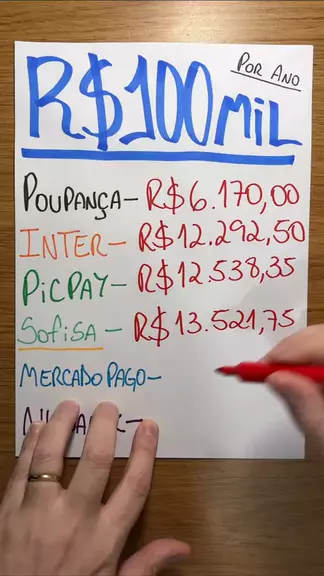 R$100MIL
POR ANO
POUPANÇA- R$6.170,00
INTER- R$12.292,50
PICPAY- R$12.538,35
SOFISA - R$13.521,75
MERCADO PAGO-